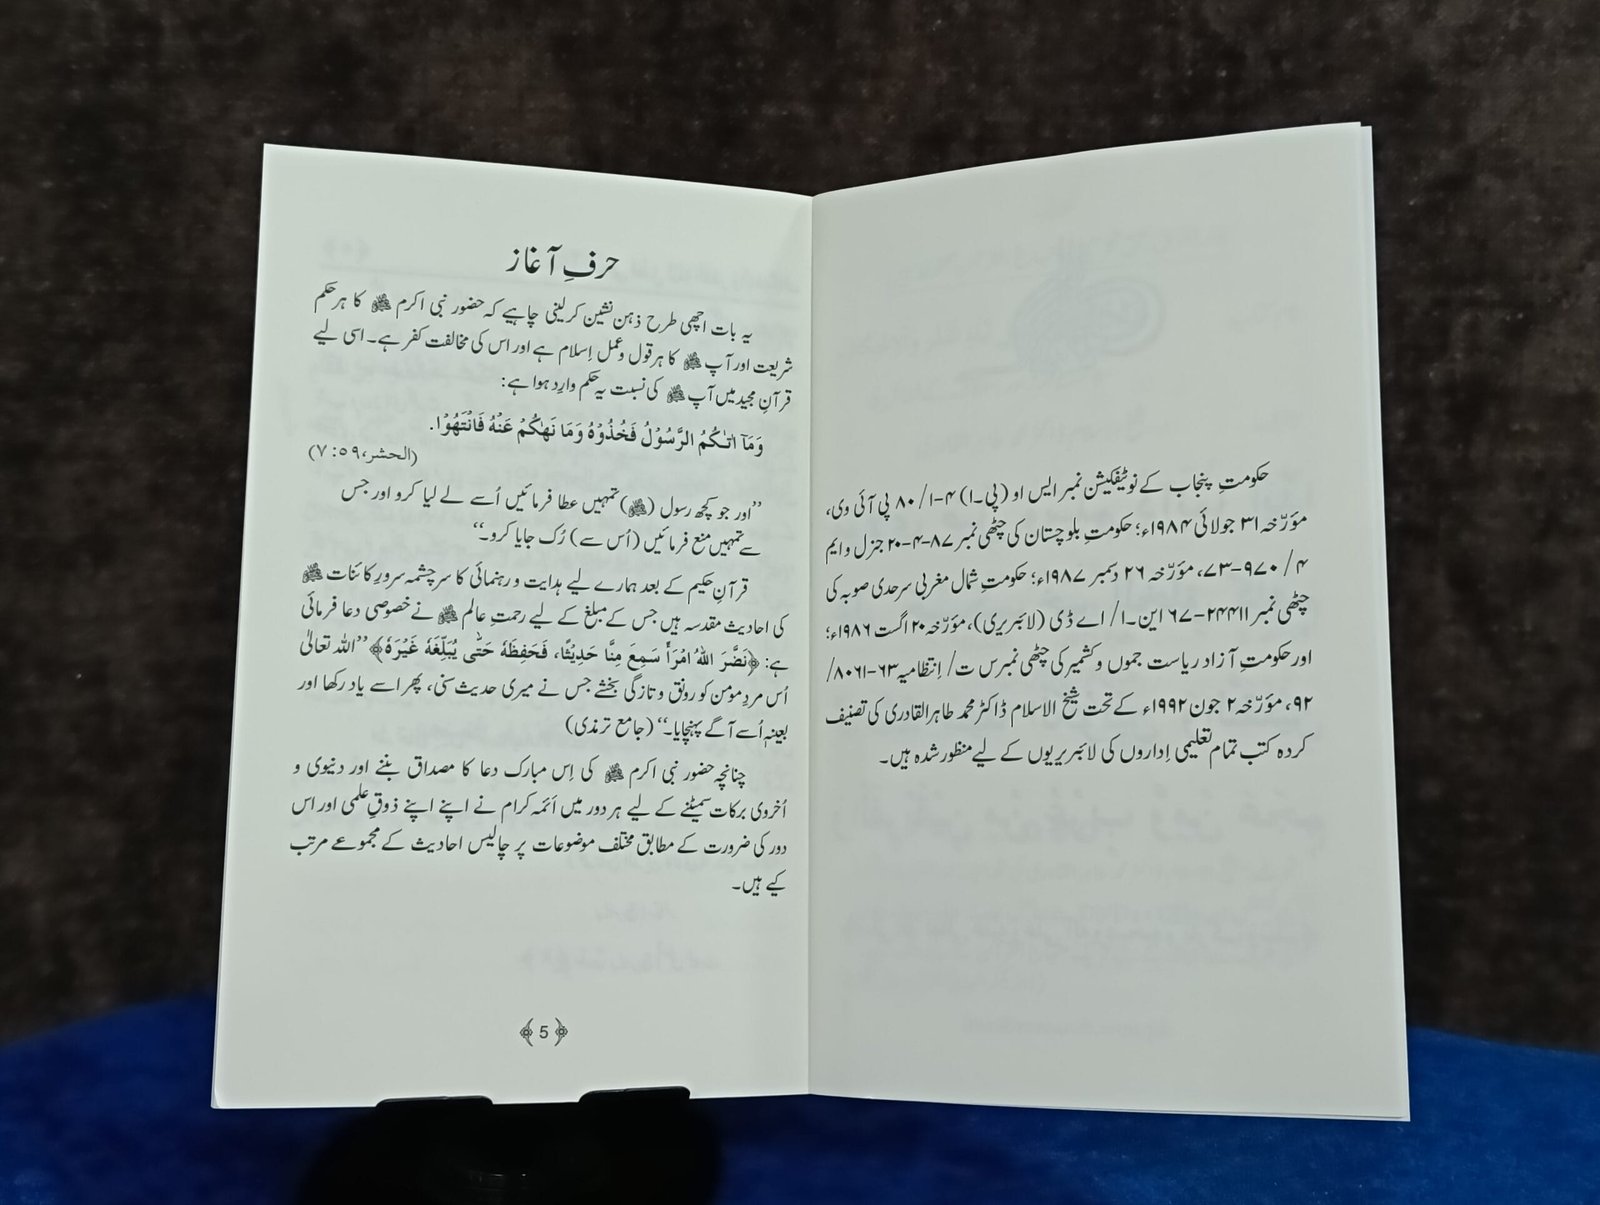 حکومتِ پنجاب کے نوٹیفکیشن نمبر ایس او (پی۔ا) ۴-۱/ ۸۰ پی آئی وی،
مؤرّخہ ۳۱ جولائی ۱۹۸۴ء؛ حکومتِ بلوچستان کی چٹھی نمبر ۸۷-۴-۲۰ جنرل وایم
۴ / ۹۷۰-۷۳، مؤرّخہ ۲۶ دسمبر ۱۹۸۷ء؛ حکومتِ شمال مغربی سرحدی صوبہ کی
چٹھی نمبر ۲۴۴۱۱-۶۷ این۔ا/ اے ڈی (لائبریری)، مؤرّخہ ۲۰ اگست ۱۹۸۶ء؛
اور حکومتِ آزاد ریاست جموں و کشمیر کی چٹھی نمبر س ت/ اِنتظامیہ ۶۳-۸۰۶۱/
۹۲، مؤرّخہ ۲ جون ۱۹۹۲ء کے تحت شیخ الاسلام ڈاکٹر محمد طاہرالقادری کی تصنیف
کردہ کتب تمام تعلیمی اِداروں کی لائبریریوں کے لیے منظور شدہ ہیں۔
حرفِ آغاز
یہ بات اچھی طرح ذہن نشین کرلینی چاہیے کہ حضور نبی اکرم ﷺ کا ہر حکم
شریعت اور آپ ﷺ کا ہر قول و عمل اِسلام ہے اور اس کی مخالفت کفر ہے۔ اسی لیے
قرآنِ مجید میں آپ ﷺ کی نسبت یہ حکم وارِد ہوا ہے:
وَمَآ اٰتٰـکُمُ الرَّسُوْلُ فَخُذُوْهُ وَمَا نَهٰـکُمْ عَنْهُ فَانْتَهُوْا.
(الحشر، ۵۹: ۷)
’’اور جو کچھ رسول (ﷺ) تمہیں عطا فرمائیں اُسے لے لیا کرو اور جس
سے تمہیں منع فرمائیں (اُس سے) رُک جایا کرو۔‘‘
قرآنِ حکیم کے بعد ہمارے لیے ہدایت و رہنمائی کا سرچشمہ سرورِ کائنات ﷺ
کی احادیث مقدسہ ہیں جس کے مبلغ کے لیے رحمتِ عالم ﷺ نے خصوصی دعا فرمائی
ہے: ﴿نَضَّرَ اللهُ امْرَأً سَمِعَ مِنَّا حَدِيْثًا، فَحَفِظَهُ حَتّٰى يُبَلِّغَهُ غَيْرَهُ﴾ ’’اللہ تعالیٰ
اُس مردِ مومن کو رونق و تازگی بخشے جس نے میری حدیث سنی، پھر اسے یاد رکھا اور
بعینہٖ اُسے آگے پہنچایا۔‘‘ (جامع ترمذی)
چنانچہ حضور نبی اکرم ﷺ کی اِس مبارک دعا کا مصداق بننے اور دنیوی و
اُخروی برکات سمیٹنے کے لیے ہر دور میں اَئمہ کرام نے اپنے اپنے ذوقِ علمی اور اس
دور کی ضرورت کے مطابق مختلف موضوعات پر چالیس احادیث کے مجموعے مرتب
کیے ہیں۔
5